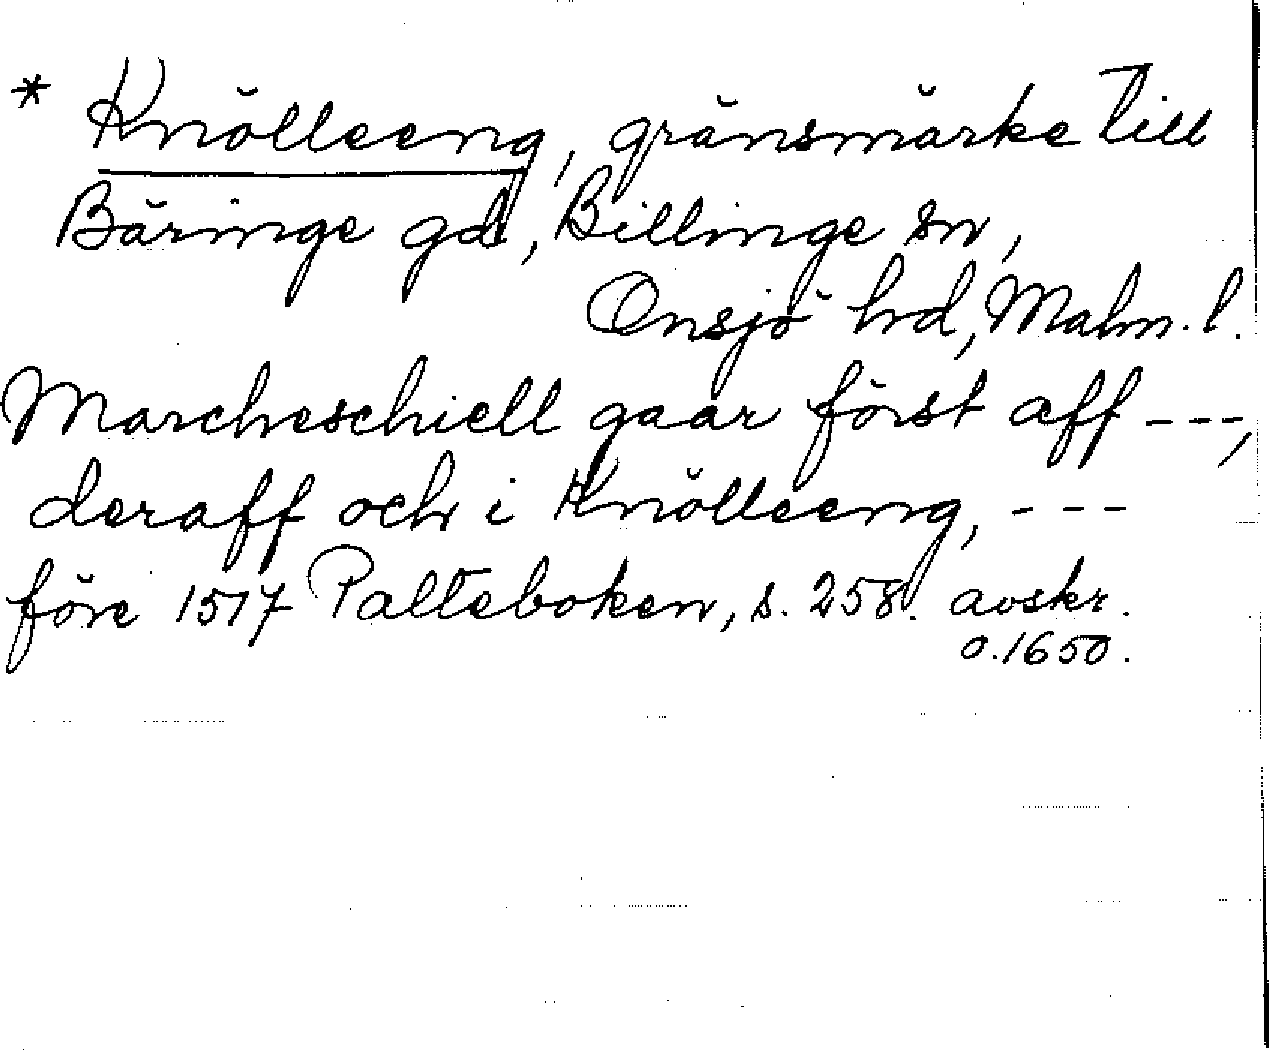 * Knölleeng, gränsmärke till
Bäringe gd, Billinge sn,
Onsjö hd, Malm. l.
Marcheschiell gaar först aff ---,
deraff och i Knölleeng, ---
före 1517 Palteboken, s. 258. avskr.
o. 1650.